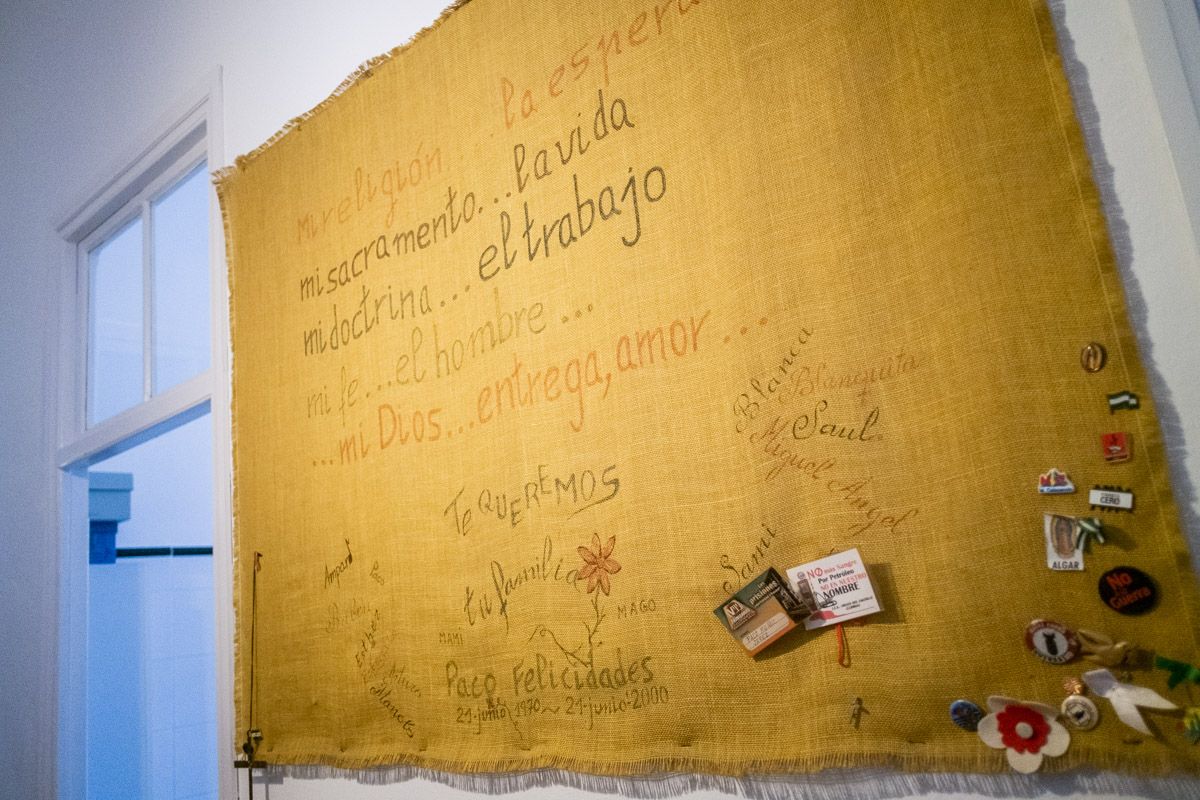 mi religión...la espera
mi sacramento...la vida
mi doctrina...el trabajo
mi fe...el hombre...
...mi Dios...entrega, amor...
Blanca
Blanquita
Saul
Miguel Angel
Sami
TE QUEREMOS
tu familia
MAMI
MAGO
Paco Felicidades
21-junio 1970~21-junio-2000
Amparo
Paco
Esther
NO más Sangre
Por Petróleo
NO EN NUESTRO
NOMBRE
CERO
ALGAR
No
a la
Guerra